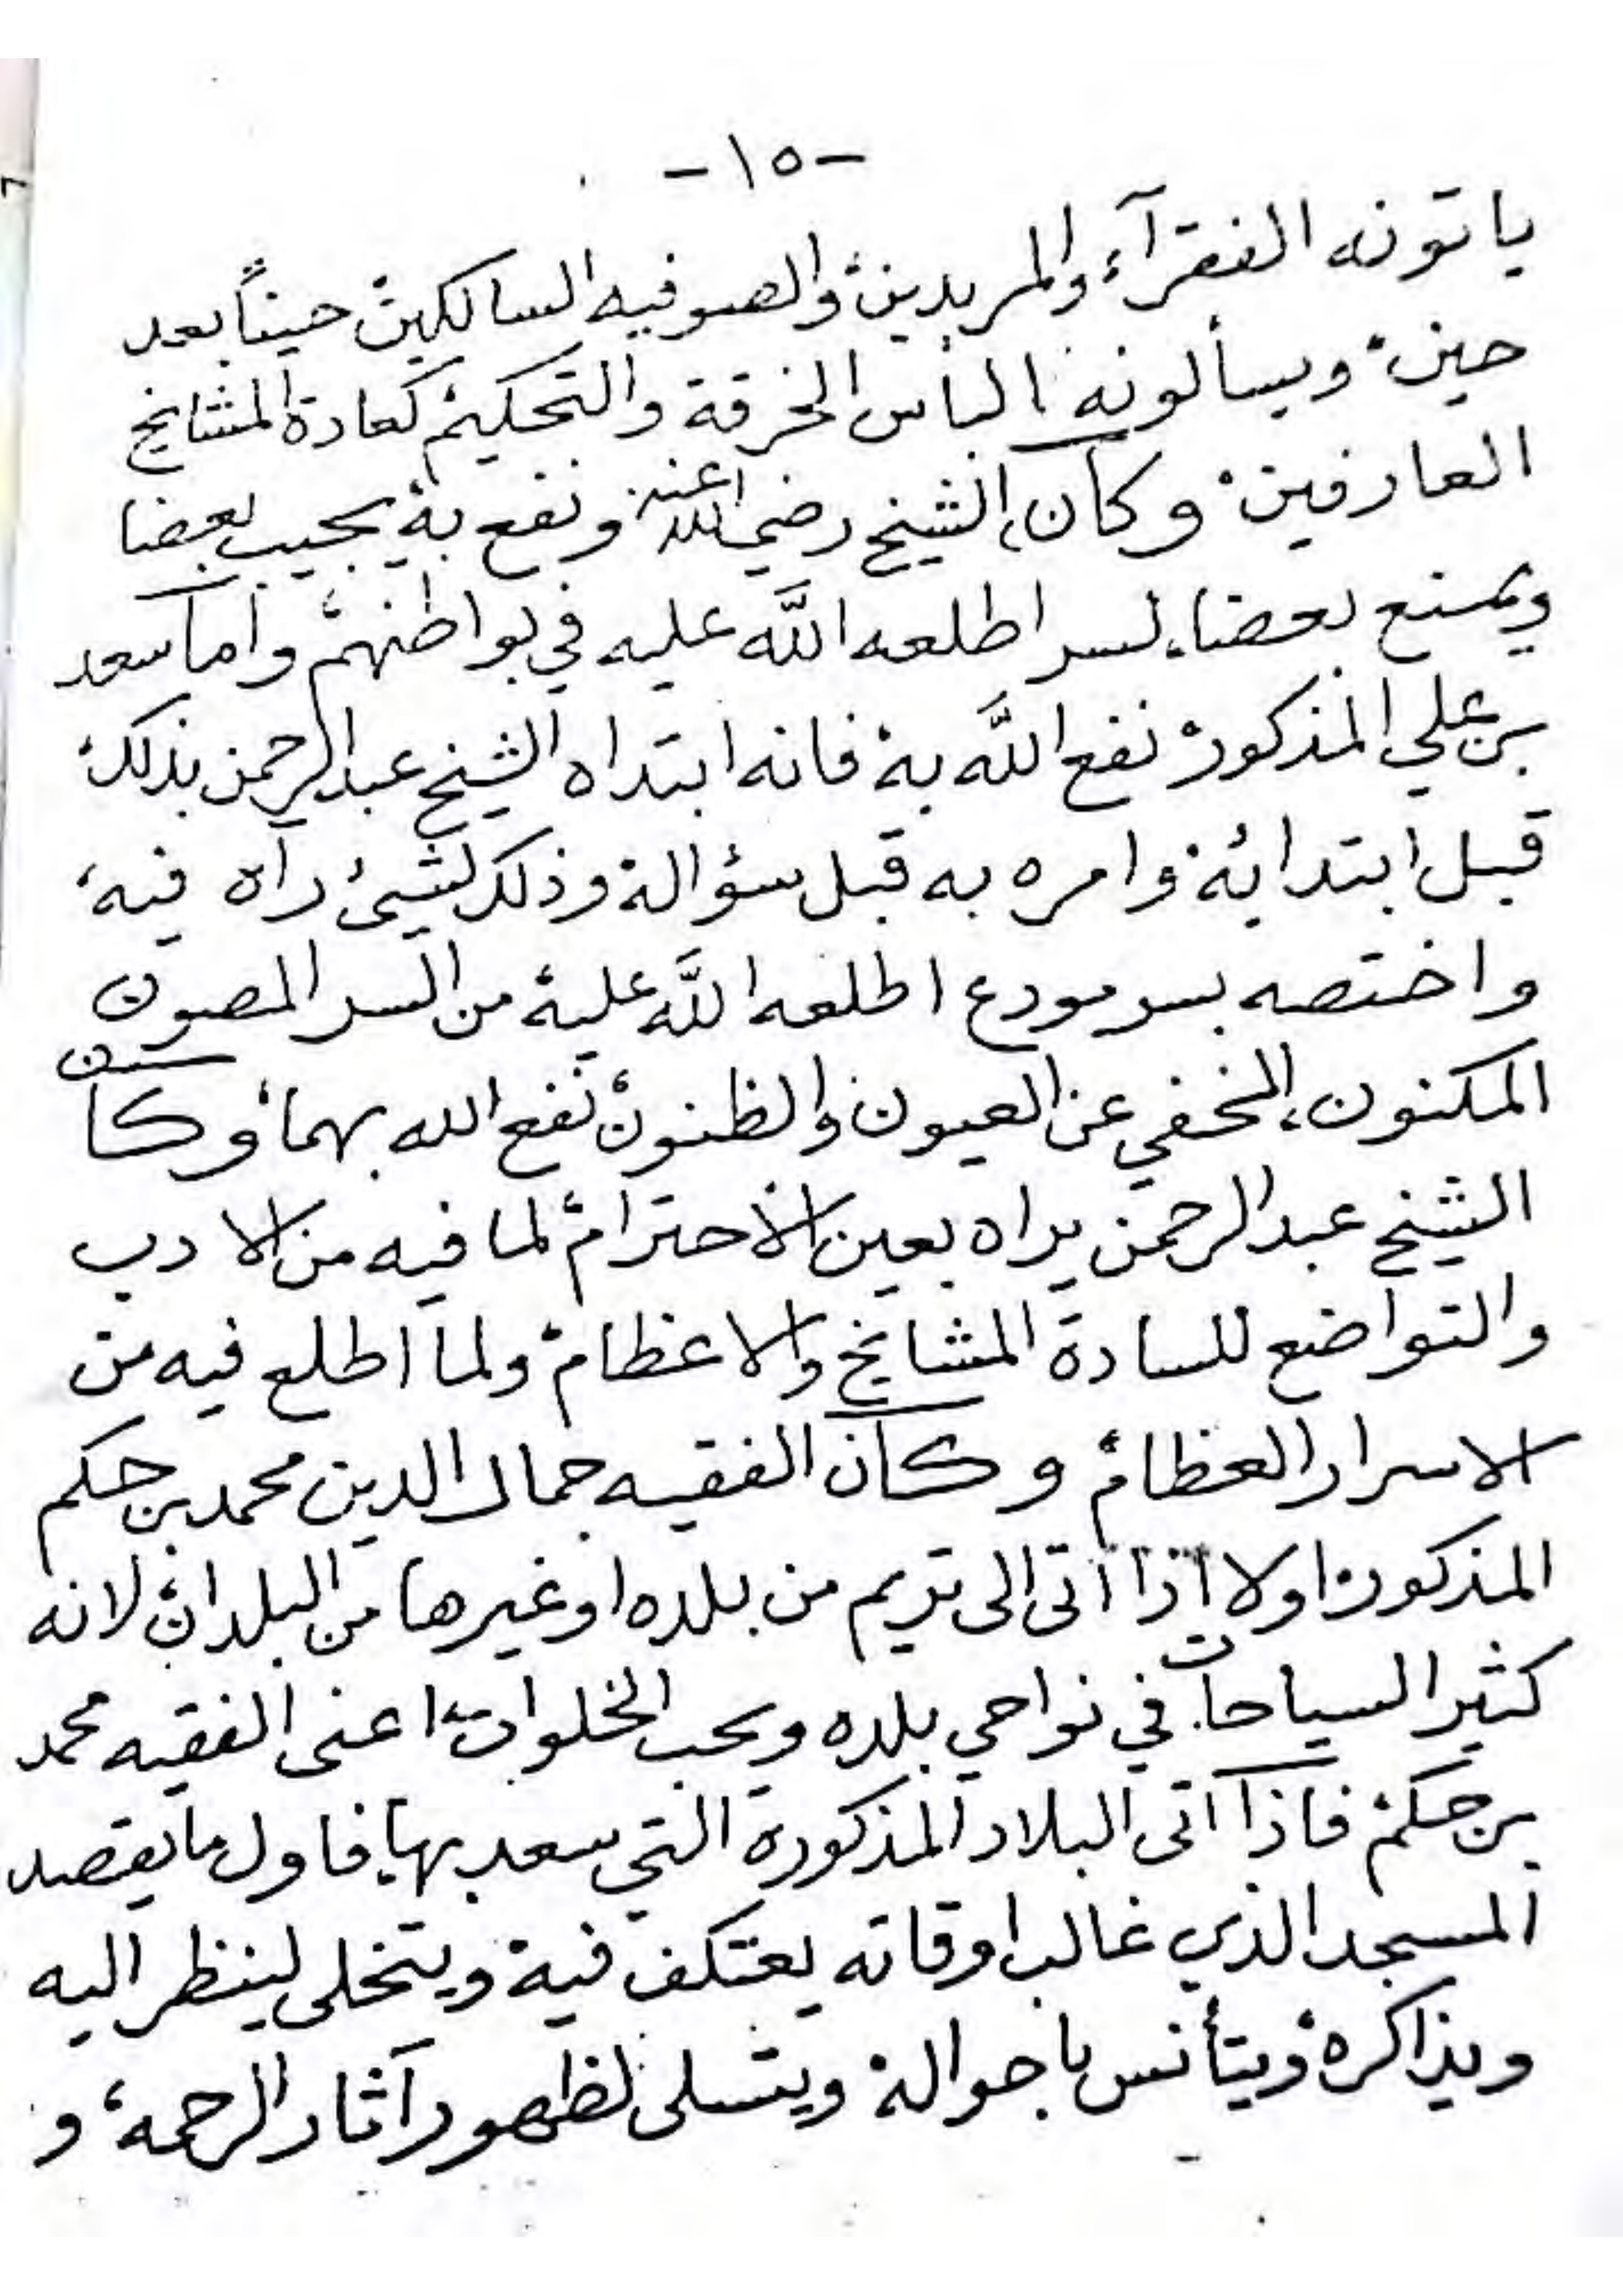 -١٥-
ياتونه الفقرآء والمريدين، والصوفيه السالكين، حيناً بعد
حين، ويسألونه الباس الخرقة والتحكيم، كعادة المشايخ
العارفين، وكان، الشيخ رضي الله عنه ونفع به، يجيب بعضا
ويمنع بعضا، لسر اطلعه اللَّه عليه في بواطنهم، واما سعد
بن علي المذكور، نفع اللَّه به، فانه ابتداه الشيخ عبدالرحمن بذلك،
قبل ابتدائه، وامره به قبل سؤاله، وذلك لشيئ رآه فيه،
واختصه بسر مودع اطلعه اللَّه عليه، من السر المصون
المكنون، الخفي عن العيون والظنون، نفع الله بهما، وكان
الشيخ عبدالرحمن يراه بعين الاحترام، لما فيه من الادب
والتواضع للسادة المشايخ والاعظام، ولما اطلع فيه من
الاسرار العظام، وكان الفقيه جمال الدين محمد بن حكم
المذكور، اولا اذا اتى الى تريم من بلده او غيرها من البلدان، لانه
كثير السياحات في نواحي بلده ويحب الخلوات، اعني الفقيه محمد
بن حكم، فاذا اتى البلاد المذكورة التي سعد بها، فاول ما يقصد
المسجد الذي غالب اوقاته يعتكف فيه، ويتخلى لينظر اليه
ويذاكره، ويتأنس باحواله، ويتسلى لظهور آثار الرحمه، و